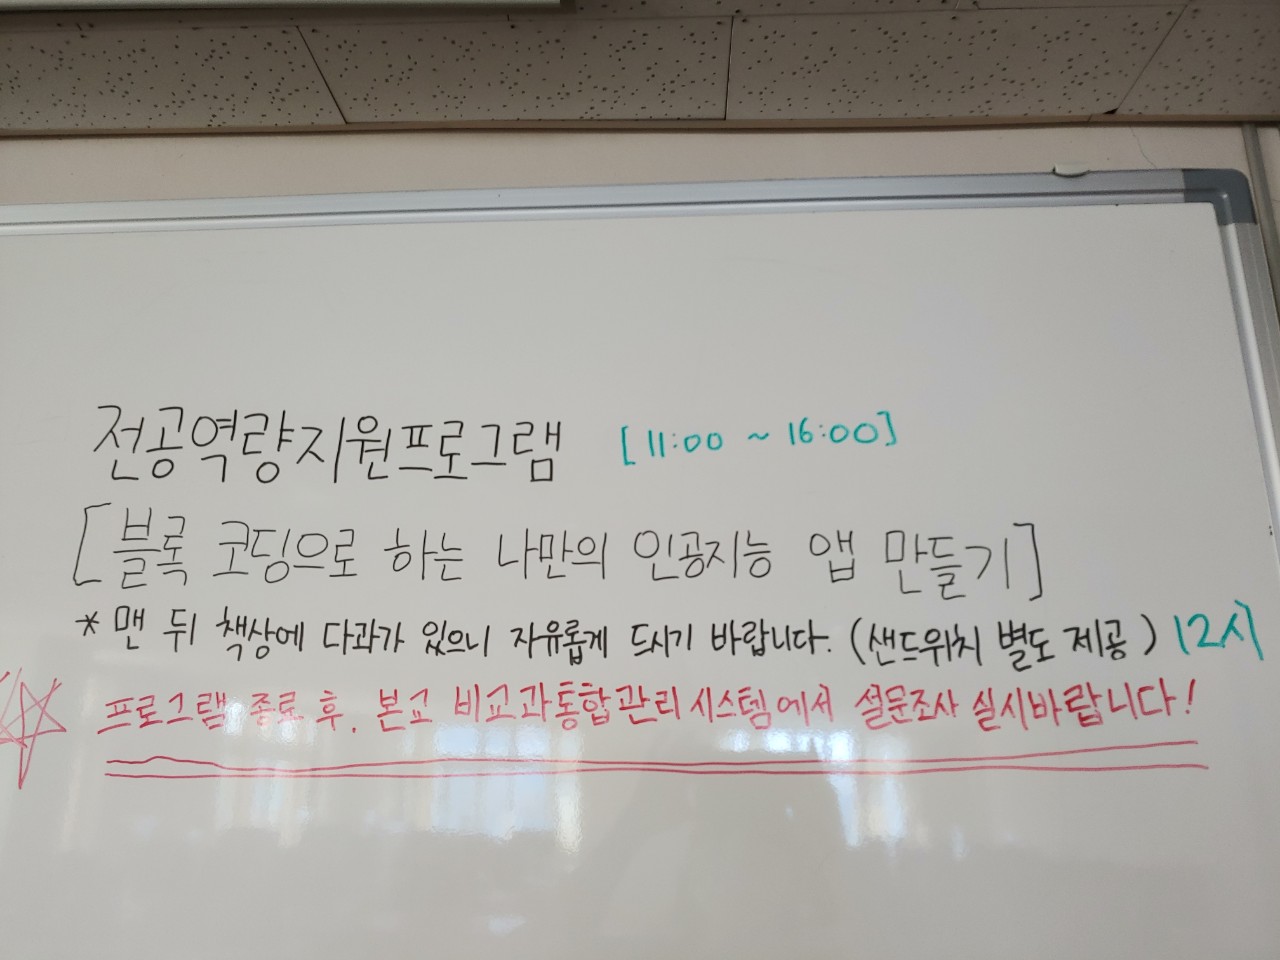 전공역량지원프로그램 [11:00 ~ 16:00]
[블록 코딩으로 하는 나만의 인공지능 앱 만들기]
* 맨 뒤 책상에 다과가 있으니 자유롭게 드시기 바랍니다. (샌드위치 별도 제공) 12시
프로그램 종료 후, 본교 비교과통합관리시스템에서 설문조사 실시바랍니다!